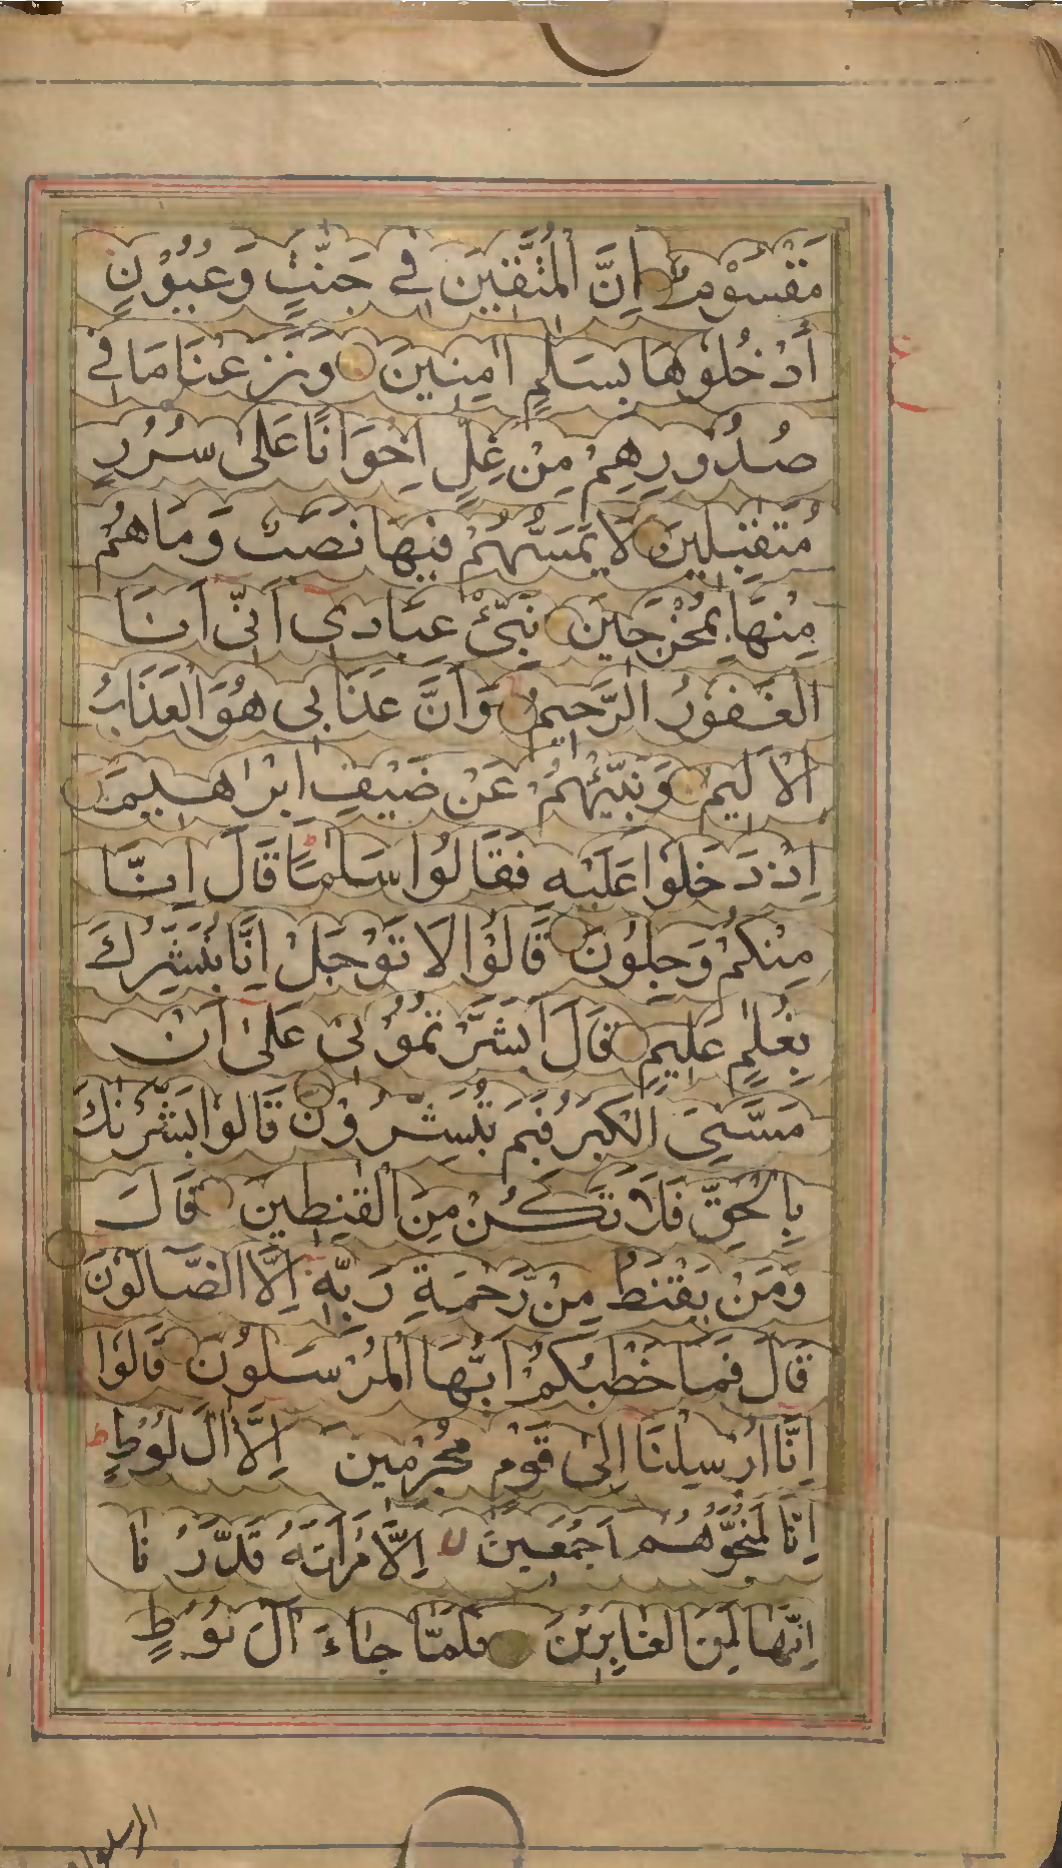 مَقْسُوْمٌ اِنَّ الْمُتَّقِيْنَ فِيْ جَنّٰتٍ وَّعُيُوْنٍ
اُدْخُلُوْهَا بِسَلٰمٍ اٰمِنِيْنَ وَنَزَعْنَا مَا فِيْ
صُدُوْرِهِمْ مِنْ غِلٍّ اِخْوَانًا عَلٰى سُرُرٍ
مُتَقٰبِلِيْنَ لَا يَمَسُّهُمْ فِيْهَا نَصَبٌ وَمَا هُمْ
مِنْهَا بِمُخْرَجِيْنَ نَبِّئْ عِبَادِيْ اَنِّيْ اَنَا
الْغَفُوْرُ الرَّحِيْمُ وَاَنَّ عَذَابِيْ هُوَ الْعَذَابُ
الْاَلِيْمُ وَنَبِّئْهُمْ عَنْ ضَيْفِ اِبْرَاهِيْمَ
اِذْ دَخَلُوْا عَلَيْهِ فَقَالُوْا سَلٰمًا قَالَ اِنَّا
مِنْكُمْ وَجِلُوْنَ قَالُوْا لَا تَوْجَلْ اِنَّا نُبَشِّرُكَ
بِغُلٰمٍ عَلِيْمٍ قَالَ اَبَشَّرْتُمُوْنِيْ عَلٰى اَنْ
مَسَّنِيَ الْكِبَرُ فَبِمَ تُبَشِّرُوْنَ قَالُوْا بَشَّرْنٰكَ
بِالْحَقِّ فَلَا تَكُنْ مِنَ الْقٰنِطِيْنَ قَالَ
وَمَنْ يَقْنَطُ مِنْ رَّحْمَةِ رَبِّهٖ اِلَّا الضَّالُّوْنَ
قَالَ فَمَا خَطْبُكُمْ اَيُّهَا الْمُرْسَلُوْنَ قَالُوْا
اِنَّا اُرْسِلْنَا اِلٰى قَوْمٍ مُجْرِمِيْنَ اِلَّا اٰلَ لُوْطٍ
اِنَّا لَمُنَجُّوْهُمْ اَجْمَعِيْنَ اِلَّا امْرَاَتَهٗ قَدَّرْنَا
اِنَّهَا لَمِنَ الْغٰبِرِيْنَ فَلَمَّا جَاءَ اٰلَ لُوْطٍ
المرسلون